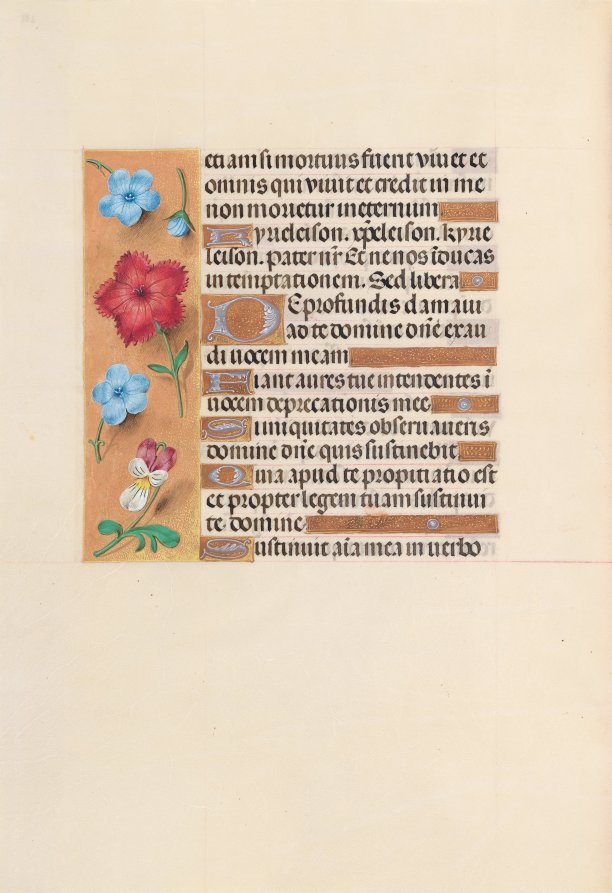 eti am si mortuus fuerit viuet et
omnis qui viuit et credit in me
non morietur in eternum
Kyrieleison. xp̄eleison. kyrie
leison. Pater nr̄ Et ne nos īducas
in temptationem. Sed libera
De profundis clamaui
ad te domine dn̄e exau
di uocem meam
Fiant aures tue intendentes ī
uocem deprecationis mee
Si iniquitates obseruaueris
domine dn̄e quis sustinebit
Quia apud te propitiatio est
et propter legem tuam sustinui
te domine
Sustinuit aīa mea in uerbo